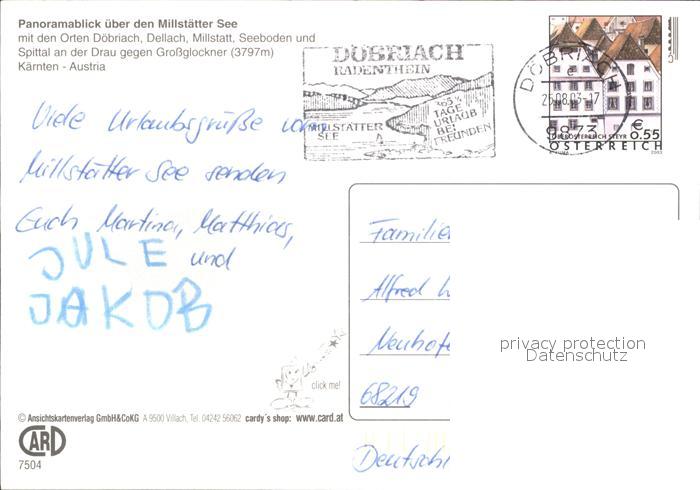 Panoramablick über den Millstätter See
mit den Orten Döbriach, Dellach, Millstatt, Seeboden und
Spittal an der Drau gegen Großglockner (3797m)
Kärnten - Austria
DÖBRIACH
RADENTHEIN
MILLSTÄTTER
SEE
365 ¼
TAGE
URLAUB
BEI
FREUNDEN
DÖBRIACH
c
25.08.03-17
9873
€
OBERÖSTERREICH STEYR 0.55
ÖSTERREICH
2003
Viele Urlaubsgrüße vom
Millstätter See senden
Euch Martina, Matthias,
JULE und
JAKOB
Familie
Alfred
68219
privacy protection
Datenschutz
click me!
© Ansichtskartenverlag GmbH&CoKG A 9500 Villach, Tel. 04242 56062 cardy's shop: www.card.at
CARD
7504